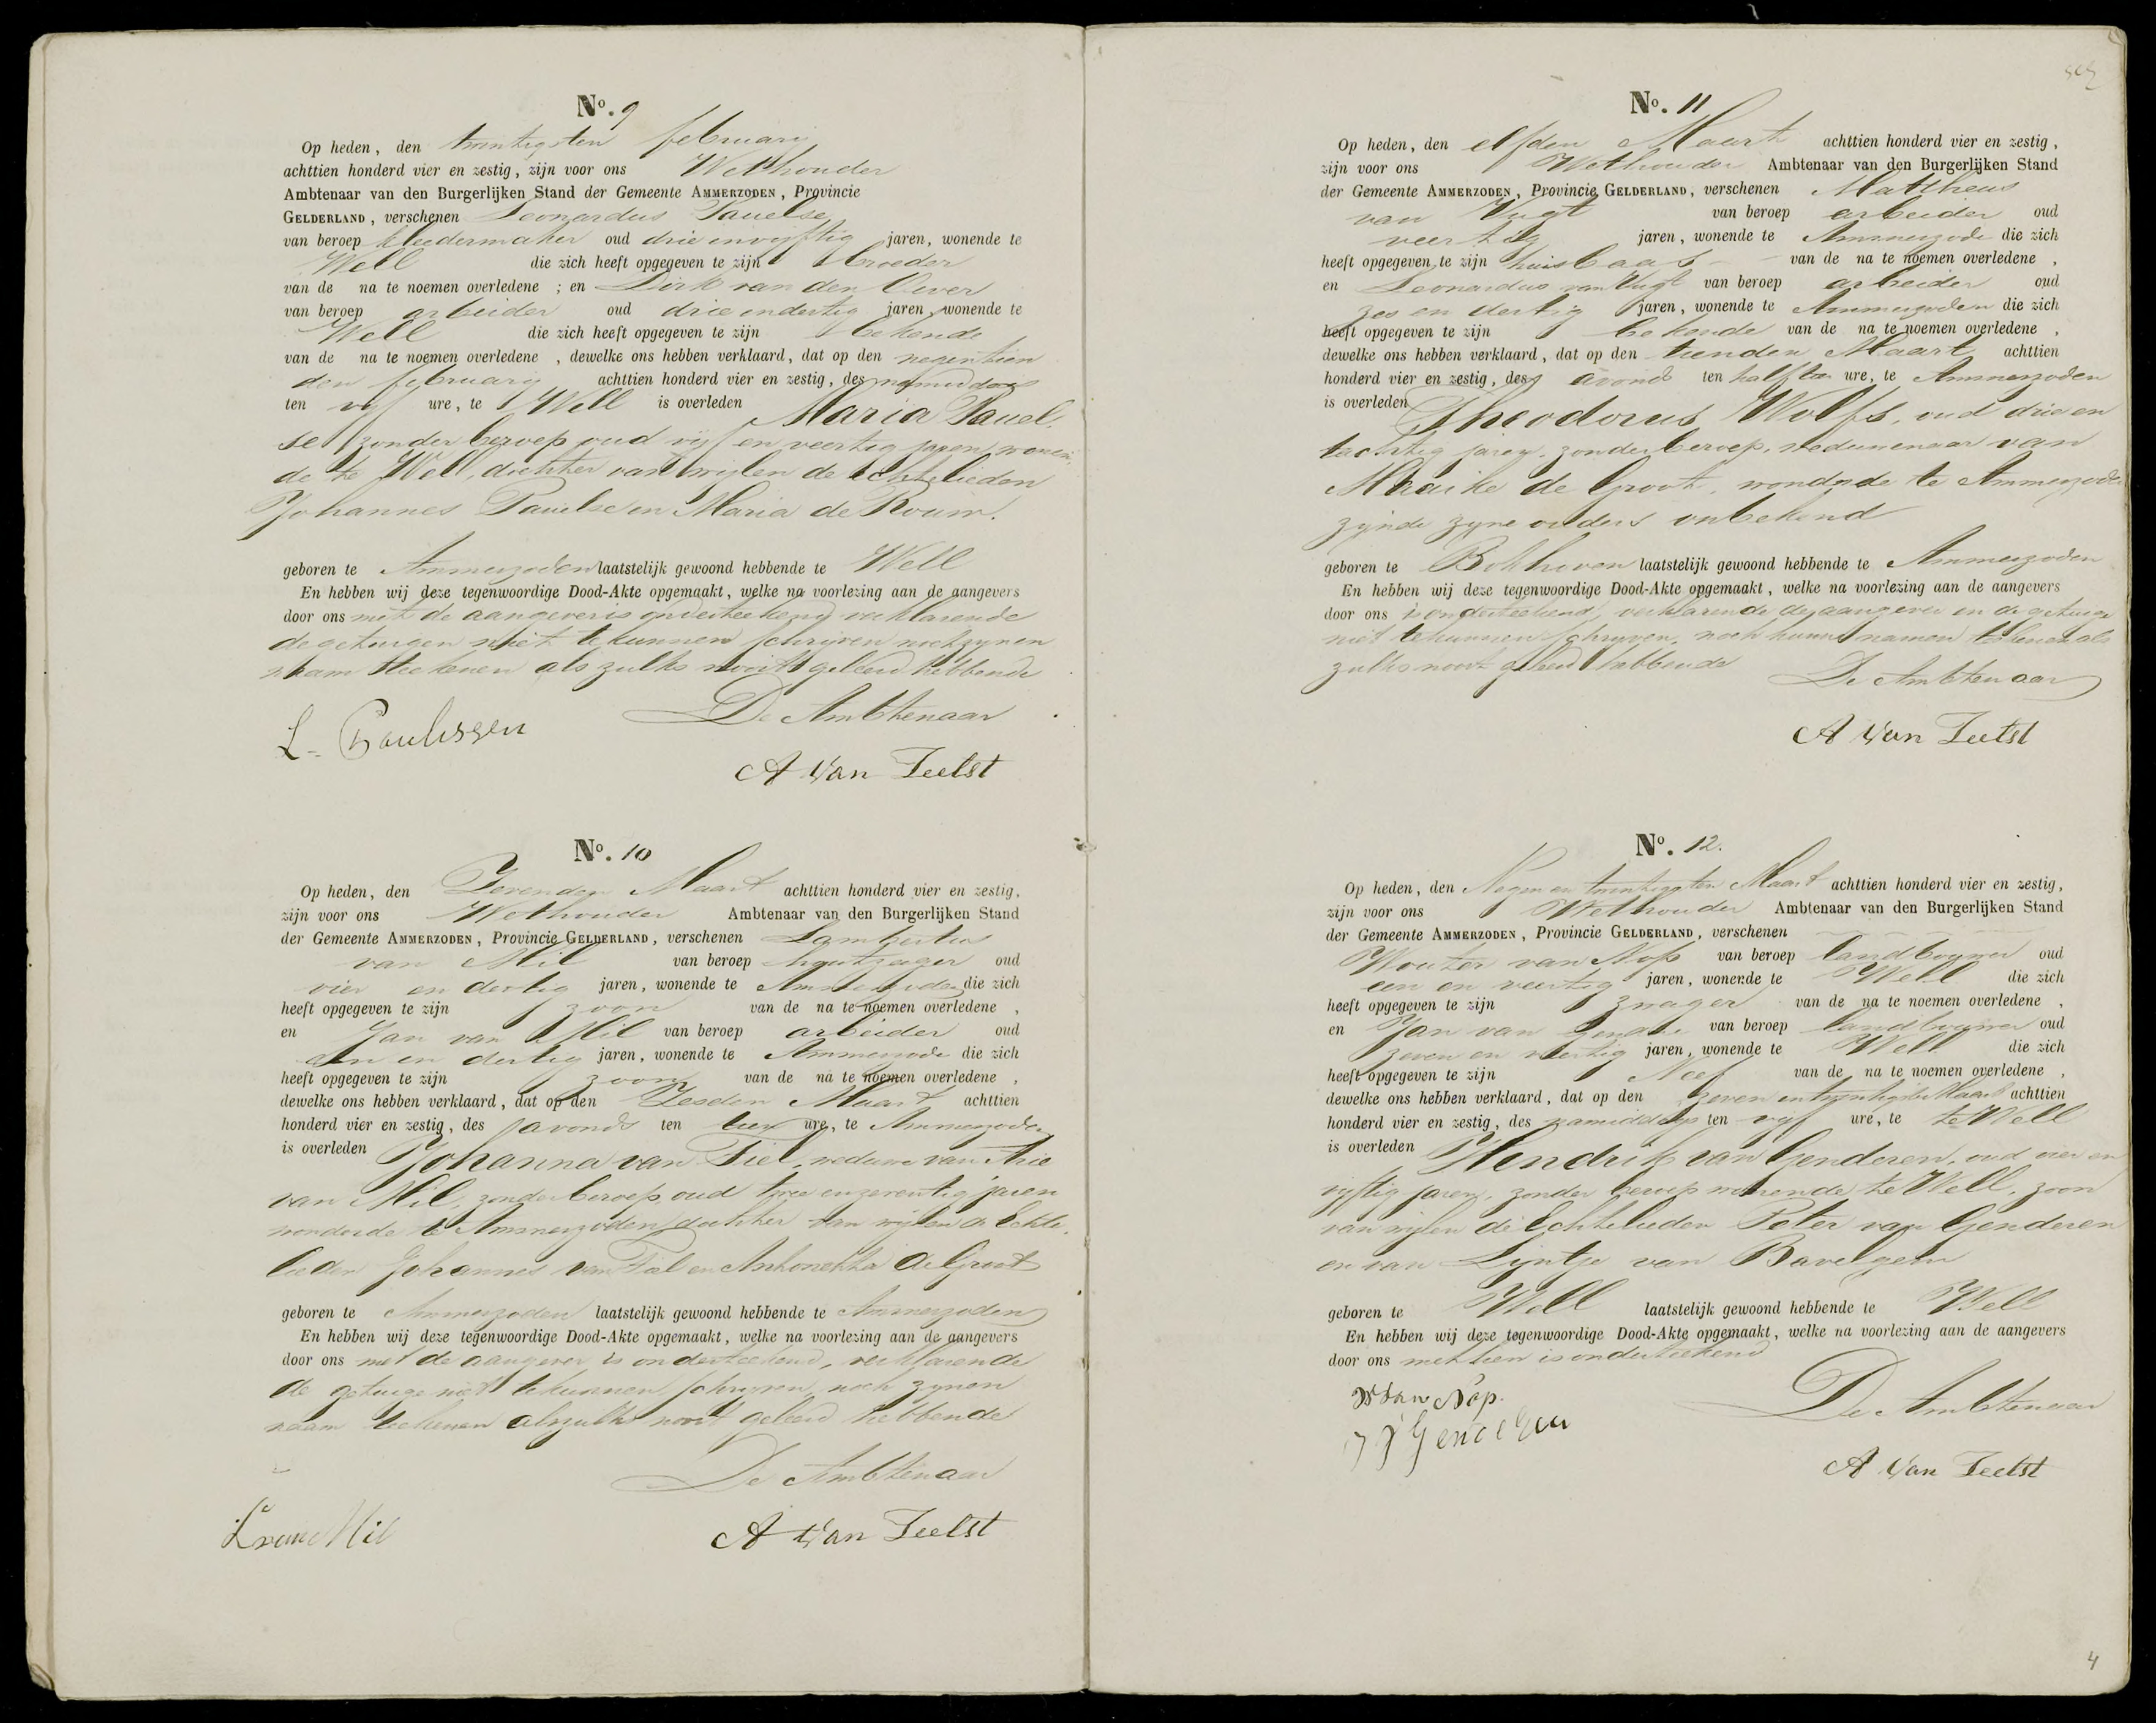 No. 9
Op heden, den twintigsten february
achttien honderd vier en zestig, zijn voor ons Wethouder
Ambtenaar van den Burgerlijken Stand der Gemeente AMMERZODEN, Provincie
GELDERLAND, verschenen Leonardus Pauelse
van beroep kleedermaker oud drie en vijftig jaren, wonende te
Well die zich heeft opgegeven te zijn broeder
van de na te noemen overledene ; en Dirk van den Oever
van beroep arbeider oud drie en dertig jaren wonende te
Well die zich heeft opgegeven te zijn bekende
van de na te noemen overledene , dewelke ons hebben verklaard, dat op den negentien
den february achttien honderd vier en zestig, des namiddags
ten vijf ure, te Well is overleden Maria Pauel-
se zonder beroep oud vijf en veertig jaren, wonen-
de te Well, dochter van wijlen de echtelieden
Johannes Pauelse en Maria de Rouw.
geboren te Ammerzoden laatstelijk gewoond hebbende te Well
En hebben wij deze tegenwoordige Dood-Akte opgemaakt, welke na voorlezing aan de aangevers
door ons met de aangever is onderteekend verklarende
de getuigen niet te kunnen schrijven noch zynen
naam teekenen als zulks nooit geleerd hebbende
De Ambtenaar
L. Paulissen
A Van Teelst
No. 10
Op heden, den Zevenden Maart achttien honderd vier en zestig,
zijn voor ons Wethouder Ambtenaar van den Burgerlijken Stand
der Gemeente AMMERZODEN, Provincie GELDERLAND, verschenen Lambertus
van Mil van beroep houtzager oud
vier en dertig jaren, wonende te Ammerzoden die zich
heeft opgegeven te zijn zoon van de na te noemen overledene ,
en Jan van Mil van beroep arbeider oud
een en dertig jaren, wonende te Ammerzode die zich
heeft opgegeven te zijn zoon van de na te noemen overledene ,
dewelke ons hebben verklaard, dat op den Zesden Maart achttien
honderd vier en zestig, des avonds ten tien ure, te Ammerzoden
is overleden Johanna van Tiel, weduwe van Arie
van Mil, zonder beroep oud twee en zeventig jaren
wonende te Ammerzoden, dochter van wijlen de Echte-
lieden Johannes van Tiel en Anthonetta de Groot
geboren te Ammerzoden laatstelijk gewoond hebbende te Ammerzoden
En hebben wij deze tegenwoordige Dood-Akte opgemaakt, welke na voorlezing aan de aangevers
door ons met de aangever is onderteekend, verklarende
de getuige niet te kunnen schryven, noch zynen
naam teekenen als zulks nooit geleerd hebbende
De Ambtenaar
L van Mil
A Van Teelst
No. 11
Op heden, den elfden Maart achttien honderd vier en zestig,
zijn voor ons Wethouder Ambtenaar van den Burgerlijken Stand
der Gemeente AMMERZODEN, Provincie GELDERLAND, verschenen Mattheus
van Vugt van beroep arbeider oud
veertig jaren, wonende te Ammerzode die zich
heeft opgegeven te zijn huisbaas van de na te noemen overledene ,
en Leonardus van Vugt van beroep arbeider oud
zes en dertig jaren, wonende te Ammerzoden die zich
heeft opgegeven te zijn bekende van de na te noemen overledene ,
dewelke ons hebben verklaard, dat op den tienden Maart achttien
honderd vier en zestig, des avonds ten half tien ure, te Ammerzoden
is overleden Theodorus Wolfs, oud drie en
tachtig jaren, zonder beroep, weduwenaar van
Maaike de Groot, wonende te Ammerzoden
zynde zyne ouders onbekend
geboren te Bokhoven laatstelijk gewoond hebbende te Ammerzoden
En hebben wij deze tegenwoordige Dood-Akte opgemaakt, welke na voorlezing aan de aangevers
door ons is onderteekend, verklarende de aangever en de getuige
niet te kunnen schryven, noch hunne namen teekenen als
zulks nooit geleerd hebbende
De Ambtenaar
A Van Teelst
No. 12.
Op heden, den Negen en twintigsten Maart achttien honderd vier en zestig,
zijn voor ons Wethouder Ambtenaar van den Burgerlijken Stand
der Gemeente AMMERZODEN, Provincie GELDERLAND, verschenen
Wouter van Nop van beroep landbouwer oud
een en veertig jaren, wonende te Well die zich
heeft opgegeven te zijn zwager van de na te noemen overledene ,
en Jan van van beroep landbouwer oud
zeven en veertig jaren, wonende te Well die zich
heeft opgegeven te zijn Neef van de na te noemen overledene ,
dewelke ons hebben verklaard, dat op den zeven en twintigsten Maart achttien
honderd vier en zestig, des namiddags ten vijf ure, te te Well
is overleden Hendrik van Genderen, oud vier en
vijftig jaren, zonder beroep wonende te Well, zoon
van wijlen de Echtelieden Peter van Genderen
en van Lijntje van Bavelgem
geboren te Well laatstelijk gewoond hebbende te Well
En hebben wij deze tegenwoordige Dood-Akte opgemaakt, welke na voorlezing aan de aangevers
door ons met hen is onderteekend
De Ambtenaar
W van Nop.
A Van Teelst
4